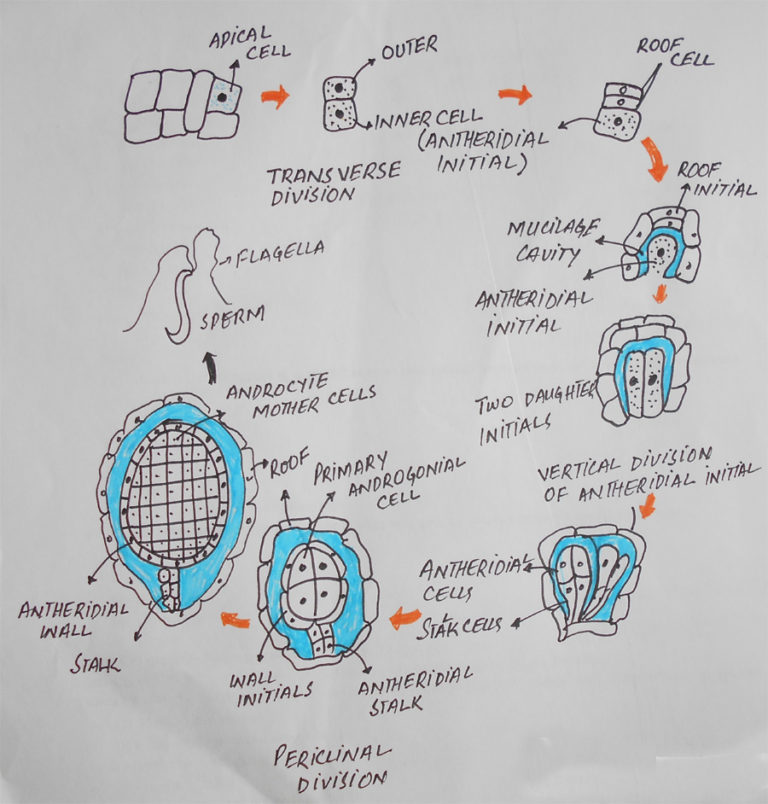 APICAL
CELL
OUTER
INNER CELL
(ANTHERIDIAL
INITIAL)
TRANSVERSE
DIVISION
ROOF
CELL
ROOF
INITIAL
MUCILAGE
CAVITY
ANTHERIDIAL
INITIAL
TWO DAUGHTER
INITIALS
VERTICAL DIVISION
OF ANTHERIDIAL INITIAL
ANTHERIDIAL
CELLS
STALK CELLS
ROOF
PRIMARY
ANDROGONIAL
CELL
WALL
INITIALS
ANTHERIDIAL
STALK
PERICLINAL
DIVISION
ANDROCYTE
MOTHER CELLS
ANTHERIDIAL
WALL
STALK
FLAGELLA
SPERM